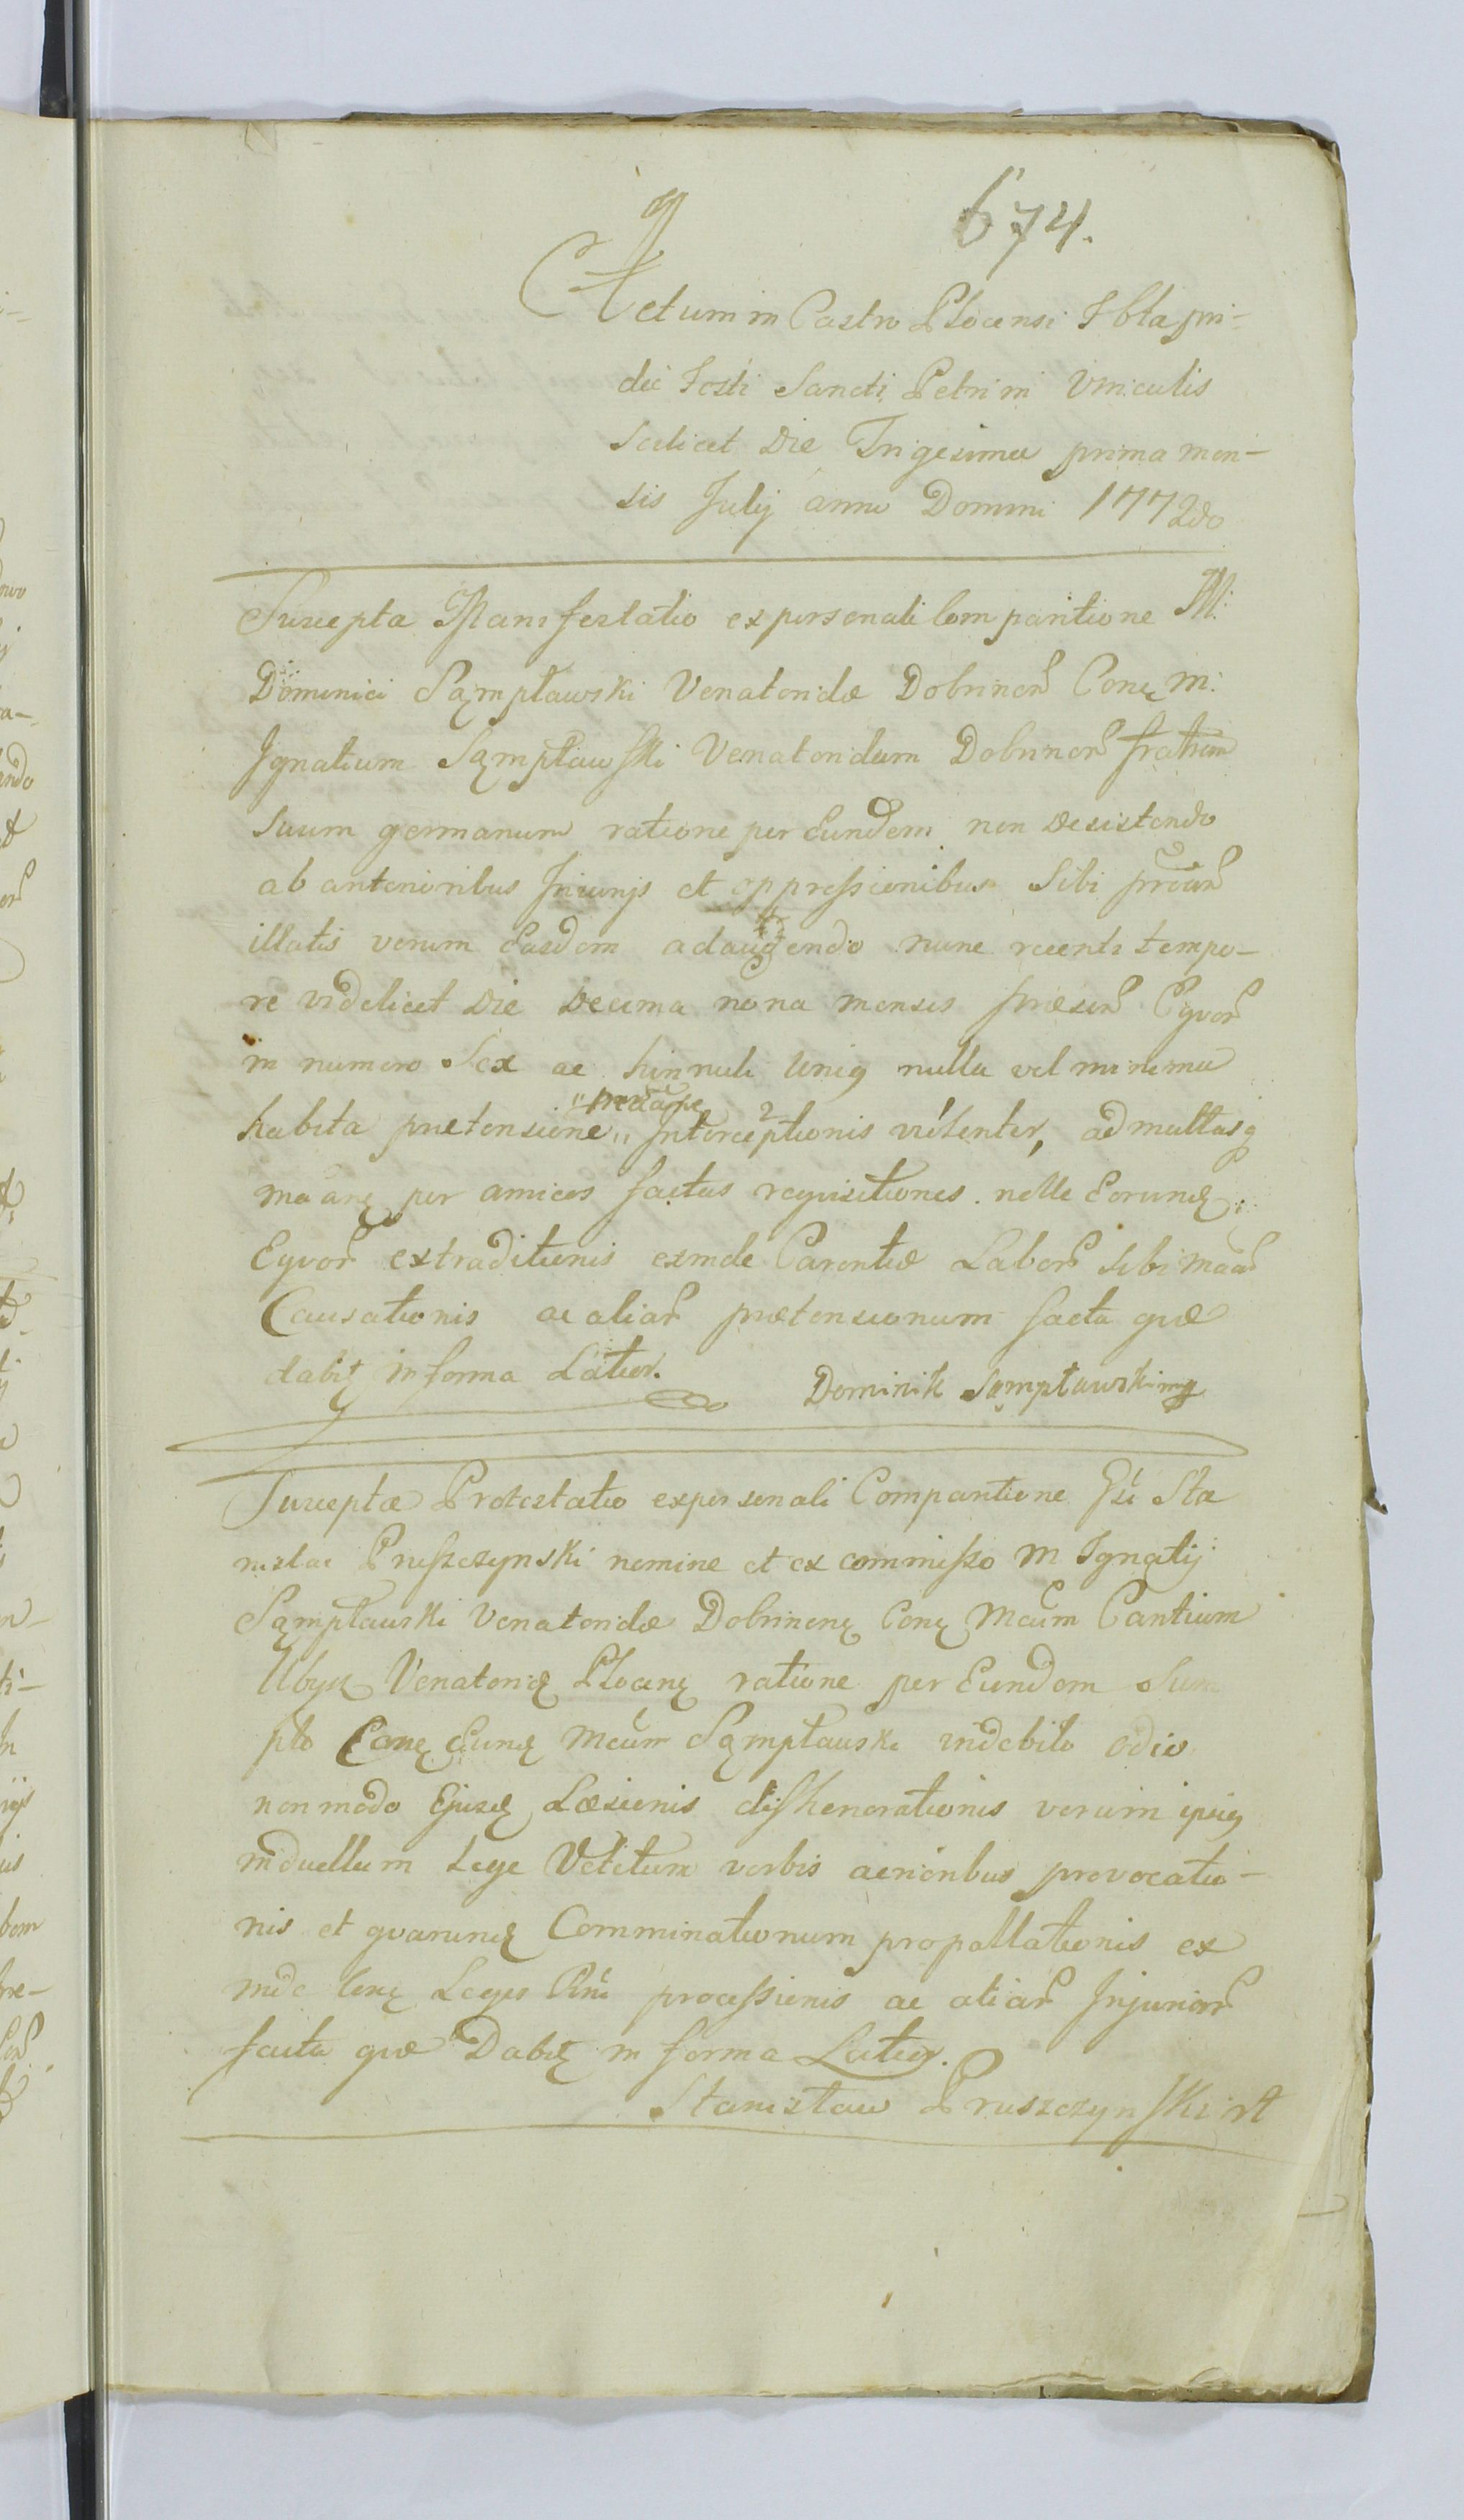 674.
Actum in Castro Plocensi Fbta pri-
die Festi Sancti Petri in Vinculis
Scilicet Die Trigesima prima men-
sis Julij anno Domini 1772do
Suscepta Manifestatio ex personali Comparitione M:
Dominici Sąmpławski Venatoridæ Dobrinen Conę M:
Ignatium Sąmpławski Venatoridam Dobrinen fratrem
Suum germanum ratione per Eundem non desistendo
ab anterioribus Iniurijs et oppressionibus Sibi
illatis verum Easdem adaugendo nunc recenti tempo-
re videlicet Die Decima nona mensis præsen Eqvor
in numero Sex ac hinnuli Unig nulla vel minima
habita prætensione Interceptionis violenter, ad multasq
per amicos factas reqvisitiones nolle Eorund
Eqvor extraditionis exinde Carentiæ Labor sibi
Causationis ac aliar prætensionum facta qvæ
dabit in forma Latior.
Dominik Sąmpławski mp
Suscepta Protestatio ex personali Comparitione Gsi Sta
nislai Pruszczynski nomine et ex commisso M Ignatij
Sąmpławski Venatoridæ Dobrinenę Conę Mcum Cantium
Ubysz Venatorid Plocenę ratione per Eundem Sum
pto Conę Eund Mcum Sąmpławski indebito odio
non modo Ejusd Læsionis dishonorationis verum ipsig
in duellum Lege Vetitum verbis acrioribus provocatio-
nis et qvarund Comminationum propallationis ex
inde Conę Leges Rni processionis ac aliar Injuriarr
facta qvæ Dabit in forma Latior.
Stanisław Pruszczynski